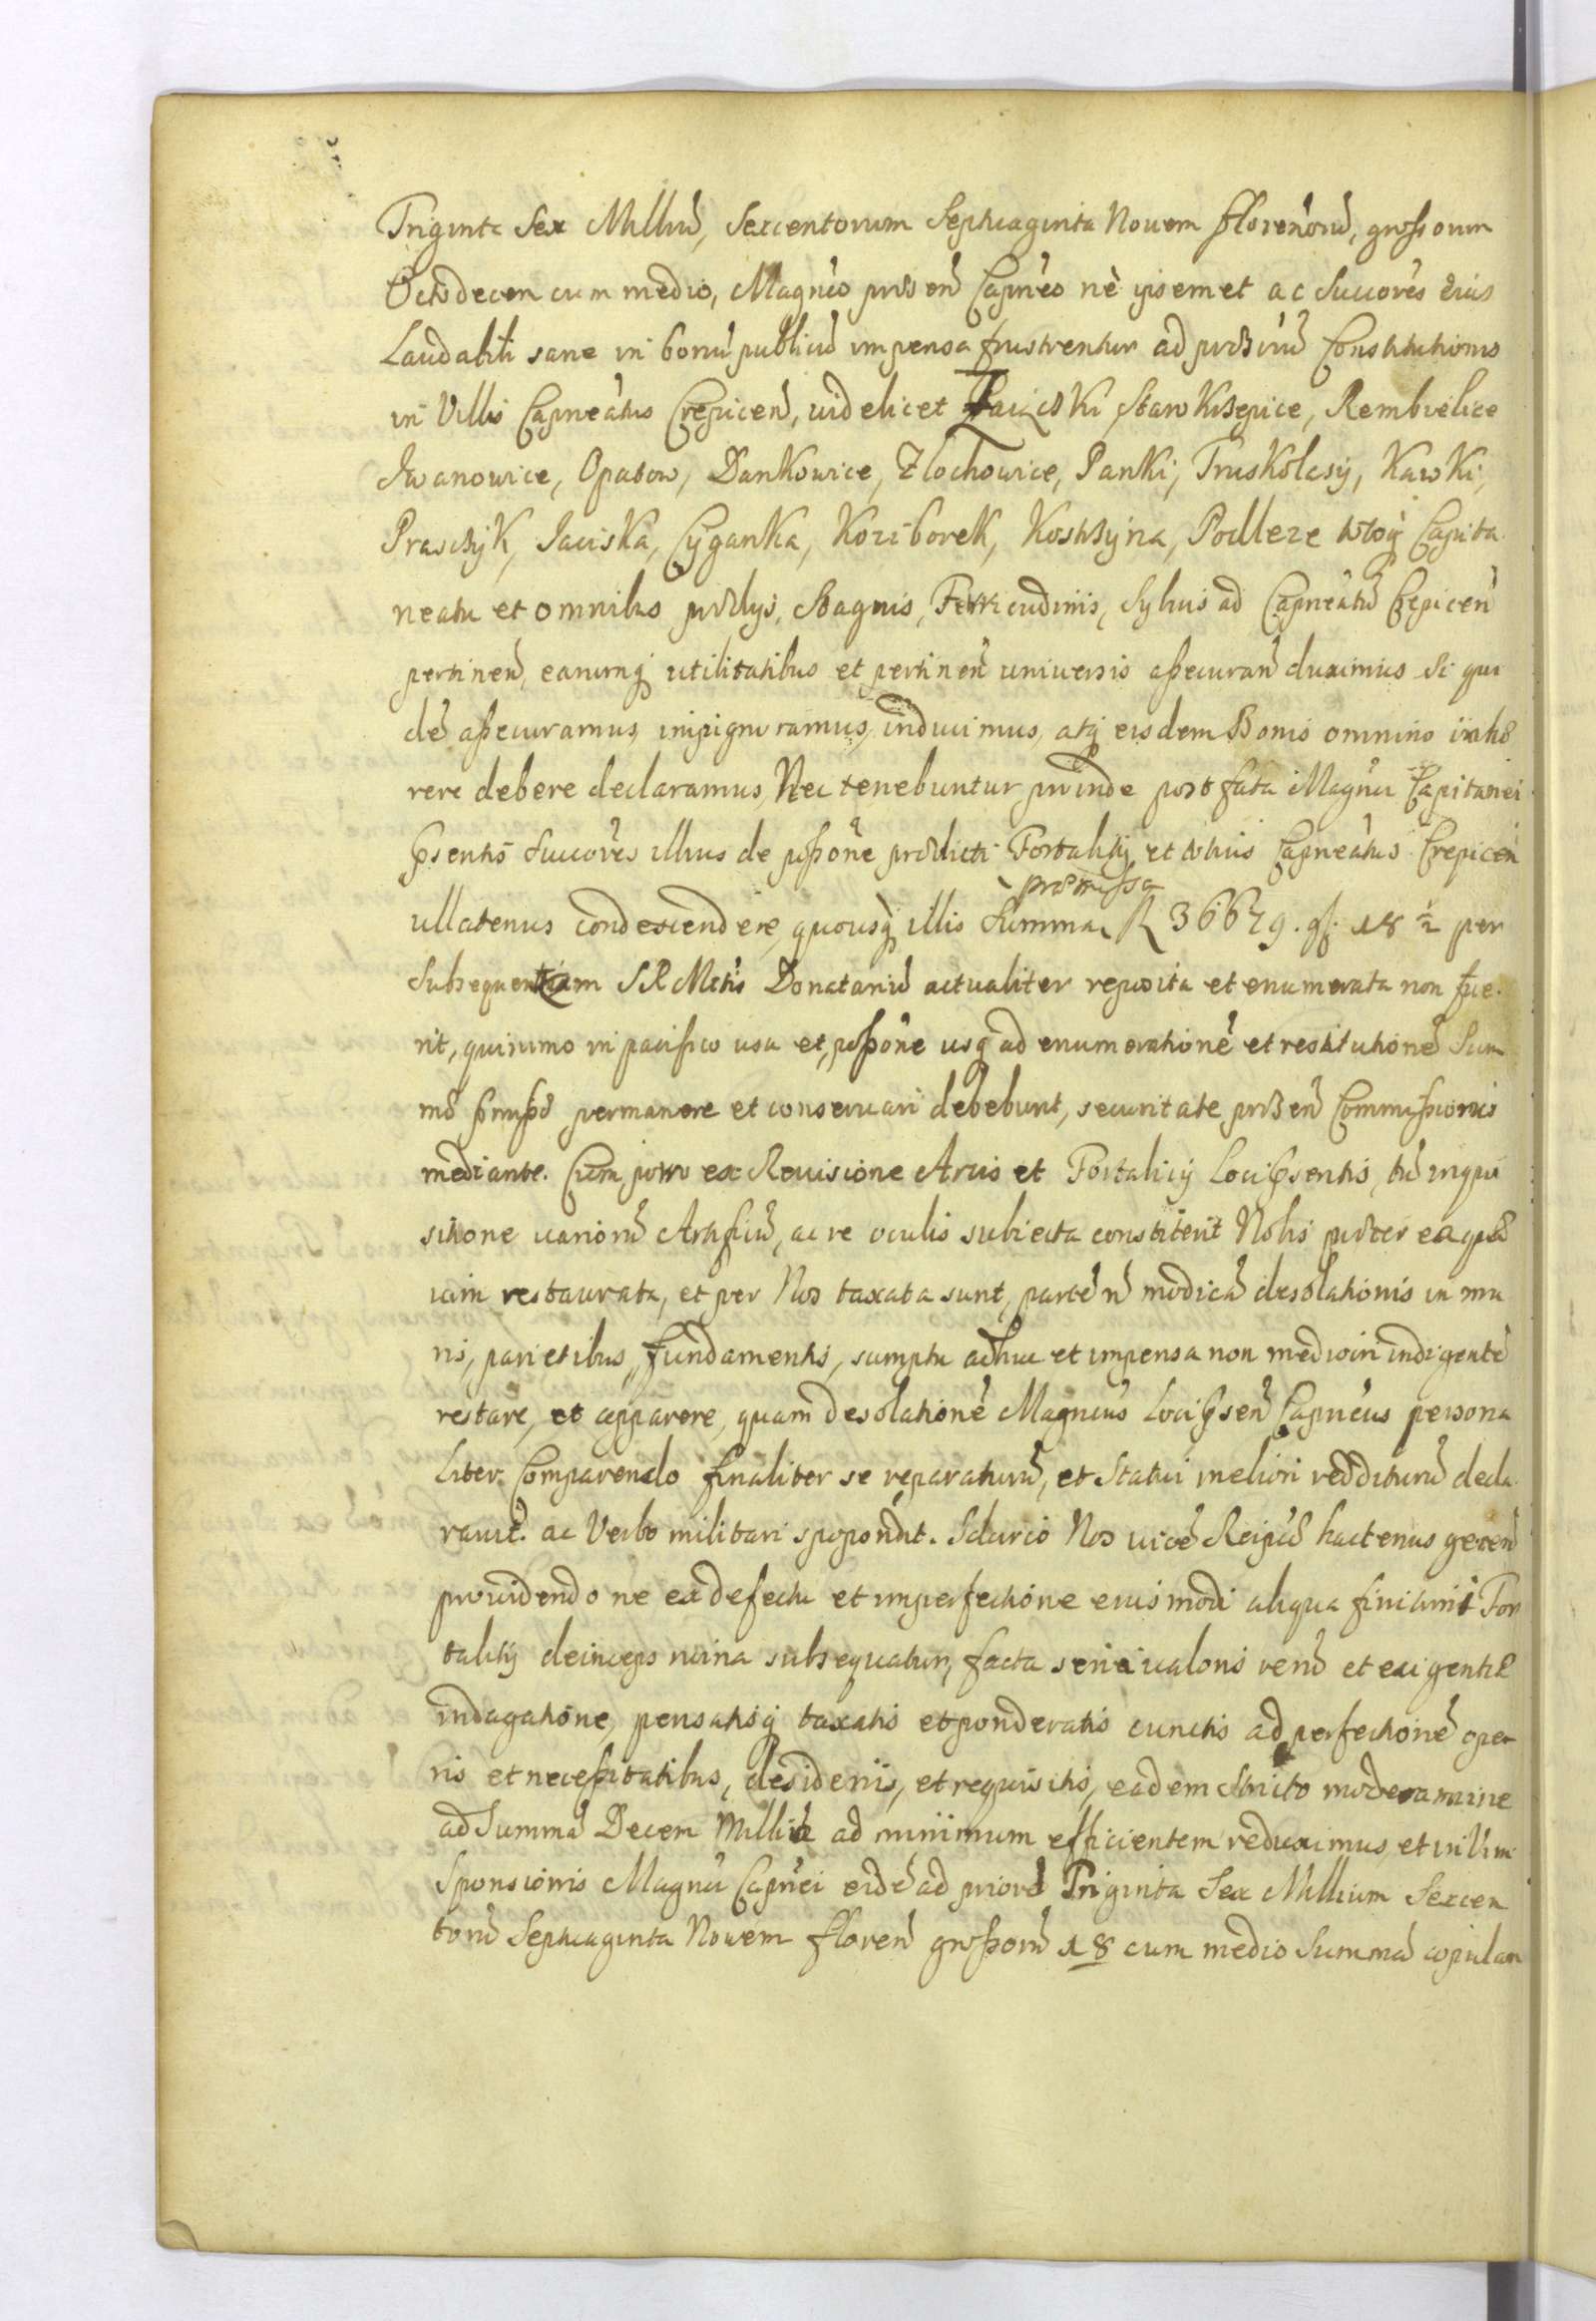 Triginta Sex Milliu̅, Sexcentorum Septuaginta Novem ffloreñoru̅, grossorum
Octodecem cum medio, Magn̅co præsen̅ Capn̅eo nè ipsemet ac Succo̅res eius
Laudabili sane in bonu̅ publicu̅ impensa frustrentur ad præsriu̅ Constitutionis
in Villis Capneatus Crepicen̅, videlicet Starokrzepice, Rembielice
Iwanowice, Opatow, Dankowice, Zlochowice, Panki, Truskolasÿ, Kawki,
Praszczÿk, Jaciska, Cÿganka, Kozi borek, Kostrzÿna, Podleze totoq̨ Capita
neatu et omnibus prædijs, Stagnis, Ferricudinis, Sylvis ad Capneatu̅ Crepicen̅
pertinen̅, earumq̨ utilitatibus et pertinen̅ universis assecuran̅ duximus Si qui
de̅ assecuramus, inpignoramus, inducimus, atq̨ eisdem Bonis omnino inhæ
rere debere declaramus, Nec tenebuntur proinde post fata Magn̅ci Capitanei
p̅sentis Succo̅res illius de possone prædicti Fortalitÿ et totius Capneatus Crepicen̅
ullatenus condescendere, quousq̨ illis Summa præmissa R 36679. gs. 18 ½ per
Subsequentiam S R Mttis Donatariu̅ actualiter reposita et enumerata non fue
rit, quinimo in pacifico usu et possone usq̨ ad enumeratione̅ et restitutione̅ Sum
mæ p̅missæ permanere et conservari debebunt, securitate præsen̅ Commissionis
mediante. Cum porro ex Revisione Arcis et Fortalicÿ Loci p̅sentis, tu̅ inqui
sitione varioru̅ Artificu̅, ac re oculis subiecta constiterit Nobis præter ea quæ
iam restaurata, et per Nos taxata sunt, parte̅ n̅ modica̅ desolationis in mu
ris, parietibus, fundamentis, sumptu adhuc et impensa non mediocri indigente̅
restare, et apparere, quam desolatione̅ Magn̅cus Loci p̅sen̅ Capn̅eus persona
liter Comparendo finaliter se reparaturu̅, et Statui meliori redditurum decla
ravit ac Verbo militari spopondit. Idcirco Nos vice̅ Reipu̅cæ hactenus geren̅
providendo ne ex defectu et imperfectione eiusmodi aliqua finitimi For
talitÿ deinceps ruina subsequatur, facta seria valoris reru̅ et exigentiæ
indagatione, pensatisq̨ taxatis et ponderatis cunctis ad perfectione̅ ope
ris et necessitatibus, desiderijs, et requisitis, eadem stricto moderamine
ad Summa̅ Decem Millia ad minimum efficientem reduximus, et in Vim
Sponsionis Magn̅ci Capn̅ei eide̅ ad priore̅ Triginta Sex Millium Sexcen
toru̅ Septuaginta Novem floren̅ grossoru̅ 18 cum medio Summa̅ copulan